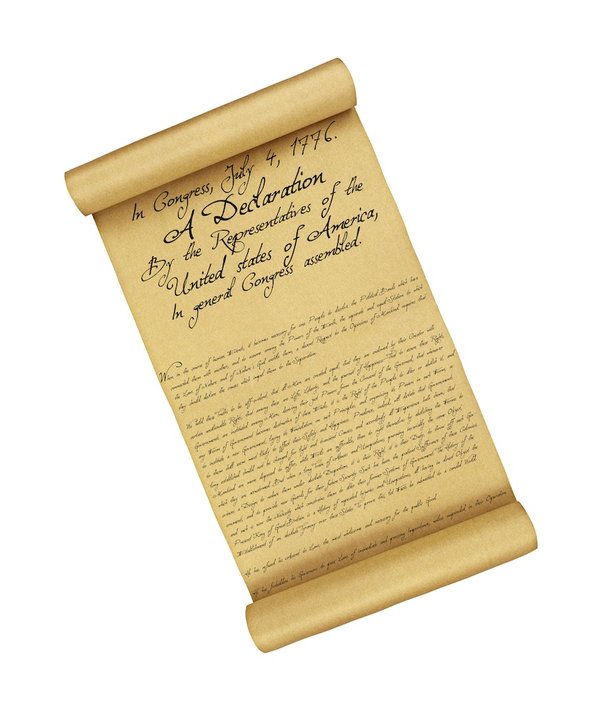 In Congress, July 4, 1776.
A Declaration
By the Representatives of the
United states of America,
In general Congress assembled.
When in the course of human Events, it becomes necessary for one People to dissolve the Political Bands which have
connected them with another, and to assume among the Powers of the Earth, the separate and equal Station to which
the Laws of Nature and of Nature's God entitle them, a decent Respect to the Opinions of Mankind requires that
they should declare the causes which impel them to the Separation.
We hold these Truths to be self-evident, that all Men are created equal, that they are endowed by their Creator with
certain unalienable Rights, that among these are Life, Liberty, and the pursuit of Happiness-That to secure these Rights,
Governments are instituted among Men, deriving their just Powers from the Consent of the Governed, that whenever
any Form of Government becomes destructive of these Ends, it is the Right of the People to alter or to abolish it, and
to institute a new Government, laying its Foundation on such Principles, and organizing its Powers in such Form, as
to them shall seem most likely to effect their Safety and Happiness. Prudence, indeed, will dictate that Governments
long established should not be changed for light and transient Causes; and accordingly all Experience hath shewn, that
Mankind are more disposed to suffer, while Evils are sufferable, than to right themselves by abolishing the Forms to
which they are accustomed. But when a long Train of Abuses and Usurpations, pursuing invariably the same Object,
evinces a Design to reduce them under absolute Despotism, it is their Right, it is their Duty, to throw off such
Government, and to provide new Guards for their future Security. Such has been the patient Sufferance of these Colonies;
and such is now the Necessity which constrains them to alter their former Systems of Government. The History of the
Present King of Great-Britain is a History of repeated Injuries and Usurpations, all having in direct Object the
Establishment of an absolute Tyranny over these States. To prove this, let Facts be submitted to a candid World.
He has refused his Assent to Laws, the most wholesome and necessary for the public Good.
He has forbidden his Governors to pass Laws of immediate and pressing Importance, unless suspended in their Operation